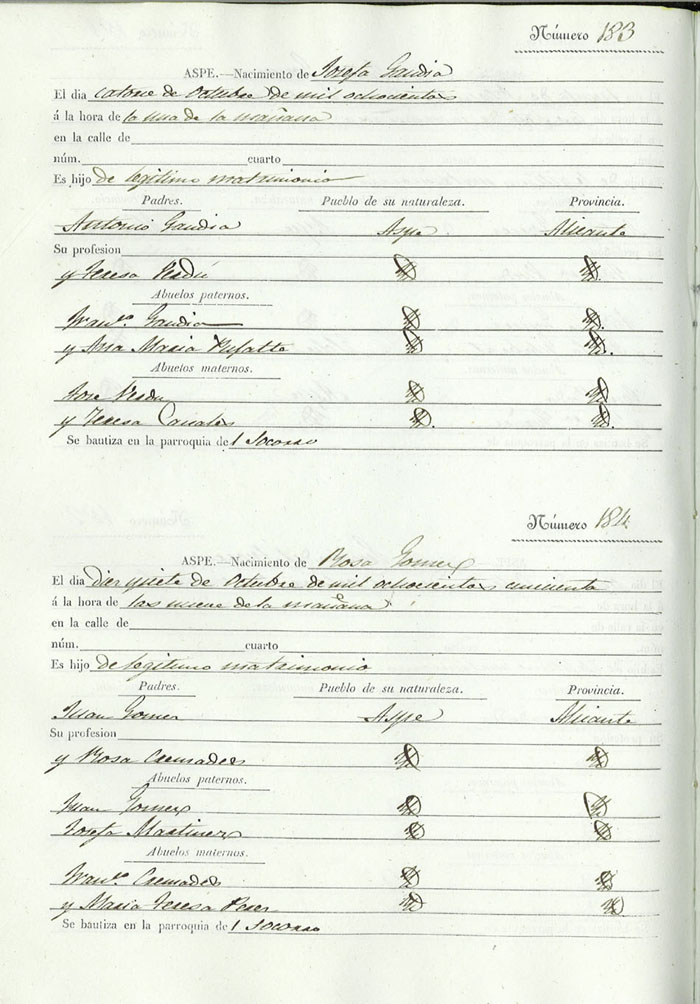 Número 183
ASPE.—Nacimiento de Josefa Gandia
El dia catorce de Octubre de mil ochocientos
á la hora de la una de la mañana
en la calle de
núm. cuarto
Es hijo de legitimo matrimonio
Padres. Pueblo de su naturaleza. Provincia.
Antonio Gandia Aspe Alicante
Su profesion
y Teresa Verdú
Abuelos paternos.
Franco. Gandia
y Ana Maria Pufalte
Abuelos maternos.
Jose Verdu
y Teresa
Se bautiza en la parroquia del Socorro
Número 184
ASPE.—Nacimiento de Rosa Gomez
El dia diez y siete de Octubre de mil ochocientos cincuenta
á la hora de las nueve de la mañana
en la calle de
núm. cuarto
Es hijo de legitimo matrimonio
Padres. Pueblo de su naturaleza. Provincia.
Juan Gomez Aspe Alicante
Su profesion
y Rosa Cremades
Abuelos paternos.
Juan Gomez
Josefa Martinez
Abuelos maternos.
Franco. Cremades
y Maria Teresa Perez
Se bautiza en la parroquia del Socorro